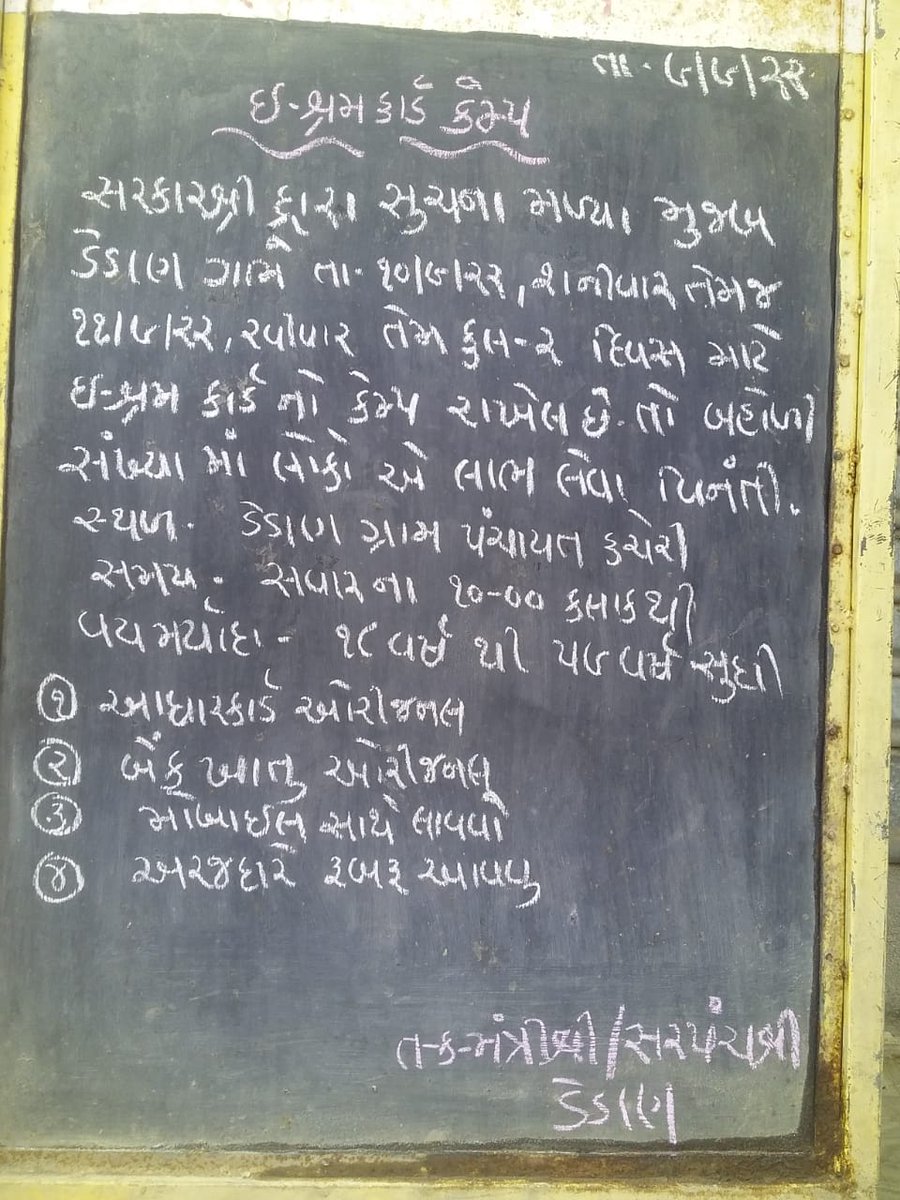 તા. ૯/૯/૨૨
ઈ-શ્રમ કાર્ડ કેમ્પ
સરકારશ્રી દ્વારા સુચના મળ્યા મુજબ
ડેડાણ ગામે તા. ૧૦/૯/૨૨, શનીવાર તેમજ
૧૧/૯/૨૨, રવીવાર તેમ કુલ-૨ દિવસ માટે
ઈ-શ્રમ કાર્ડ નો કેમ્પ રાખેલ છે. તો બહોળી
સંખ્યા માં લોકો એ લાભ લેવા વિનંતી.
સ્થળ. ડેડાણ ગ્રામ પંચાયત કચેરી
સમય. સવારના ૧૦-૦૦ કલાક થી
વયમર્યાદા - ૧૮ વર્ષ થી ૫૯ વર્ષ સુધી
૧ આધારકાર્ડ ઓરીજનલ
૨ બેંક ખાતુ ઓરીજનલ
૩ મોબાઈલ સાથે લાવવો
૪ અરજદારે રૂબરૂ આવવુ
ત-ક-મંત્રીશ્રી/સરપંચશ્રી
ડેડાણ